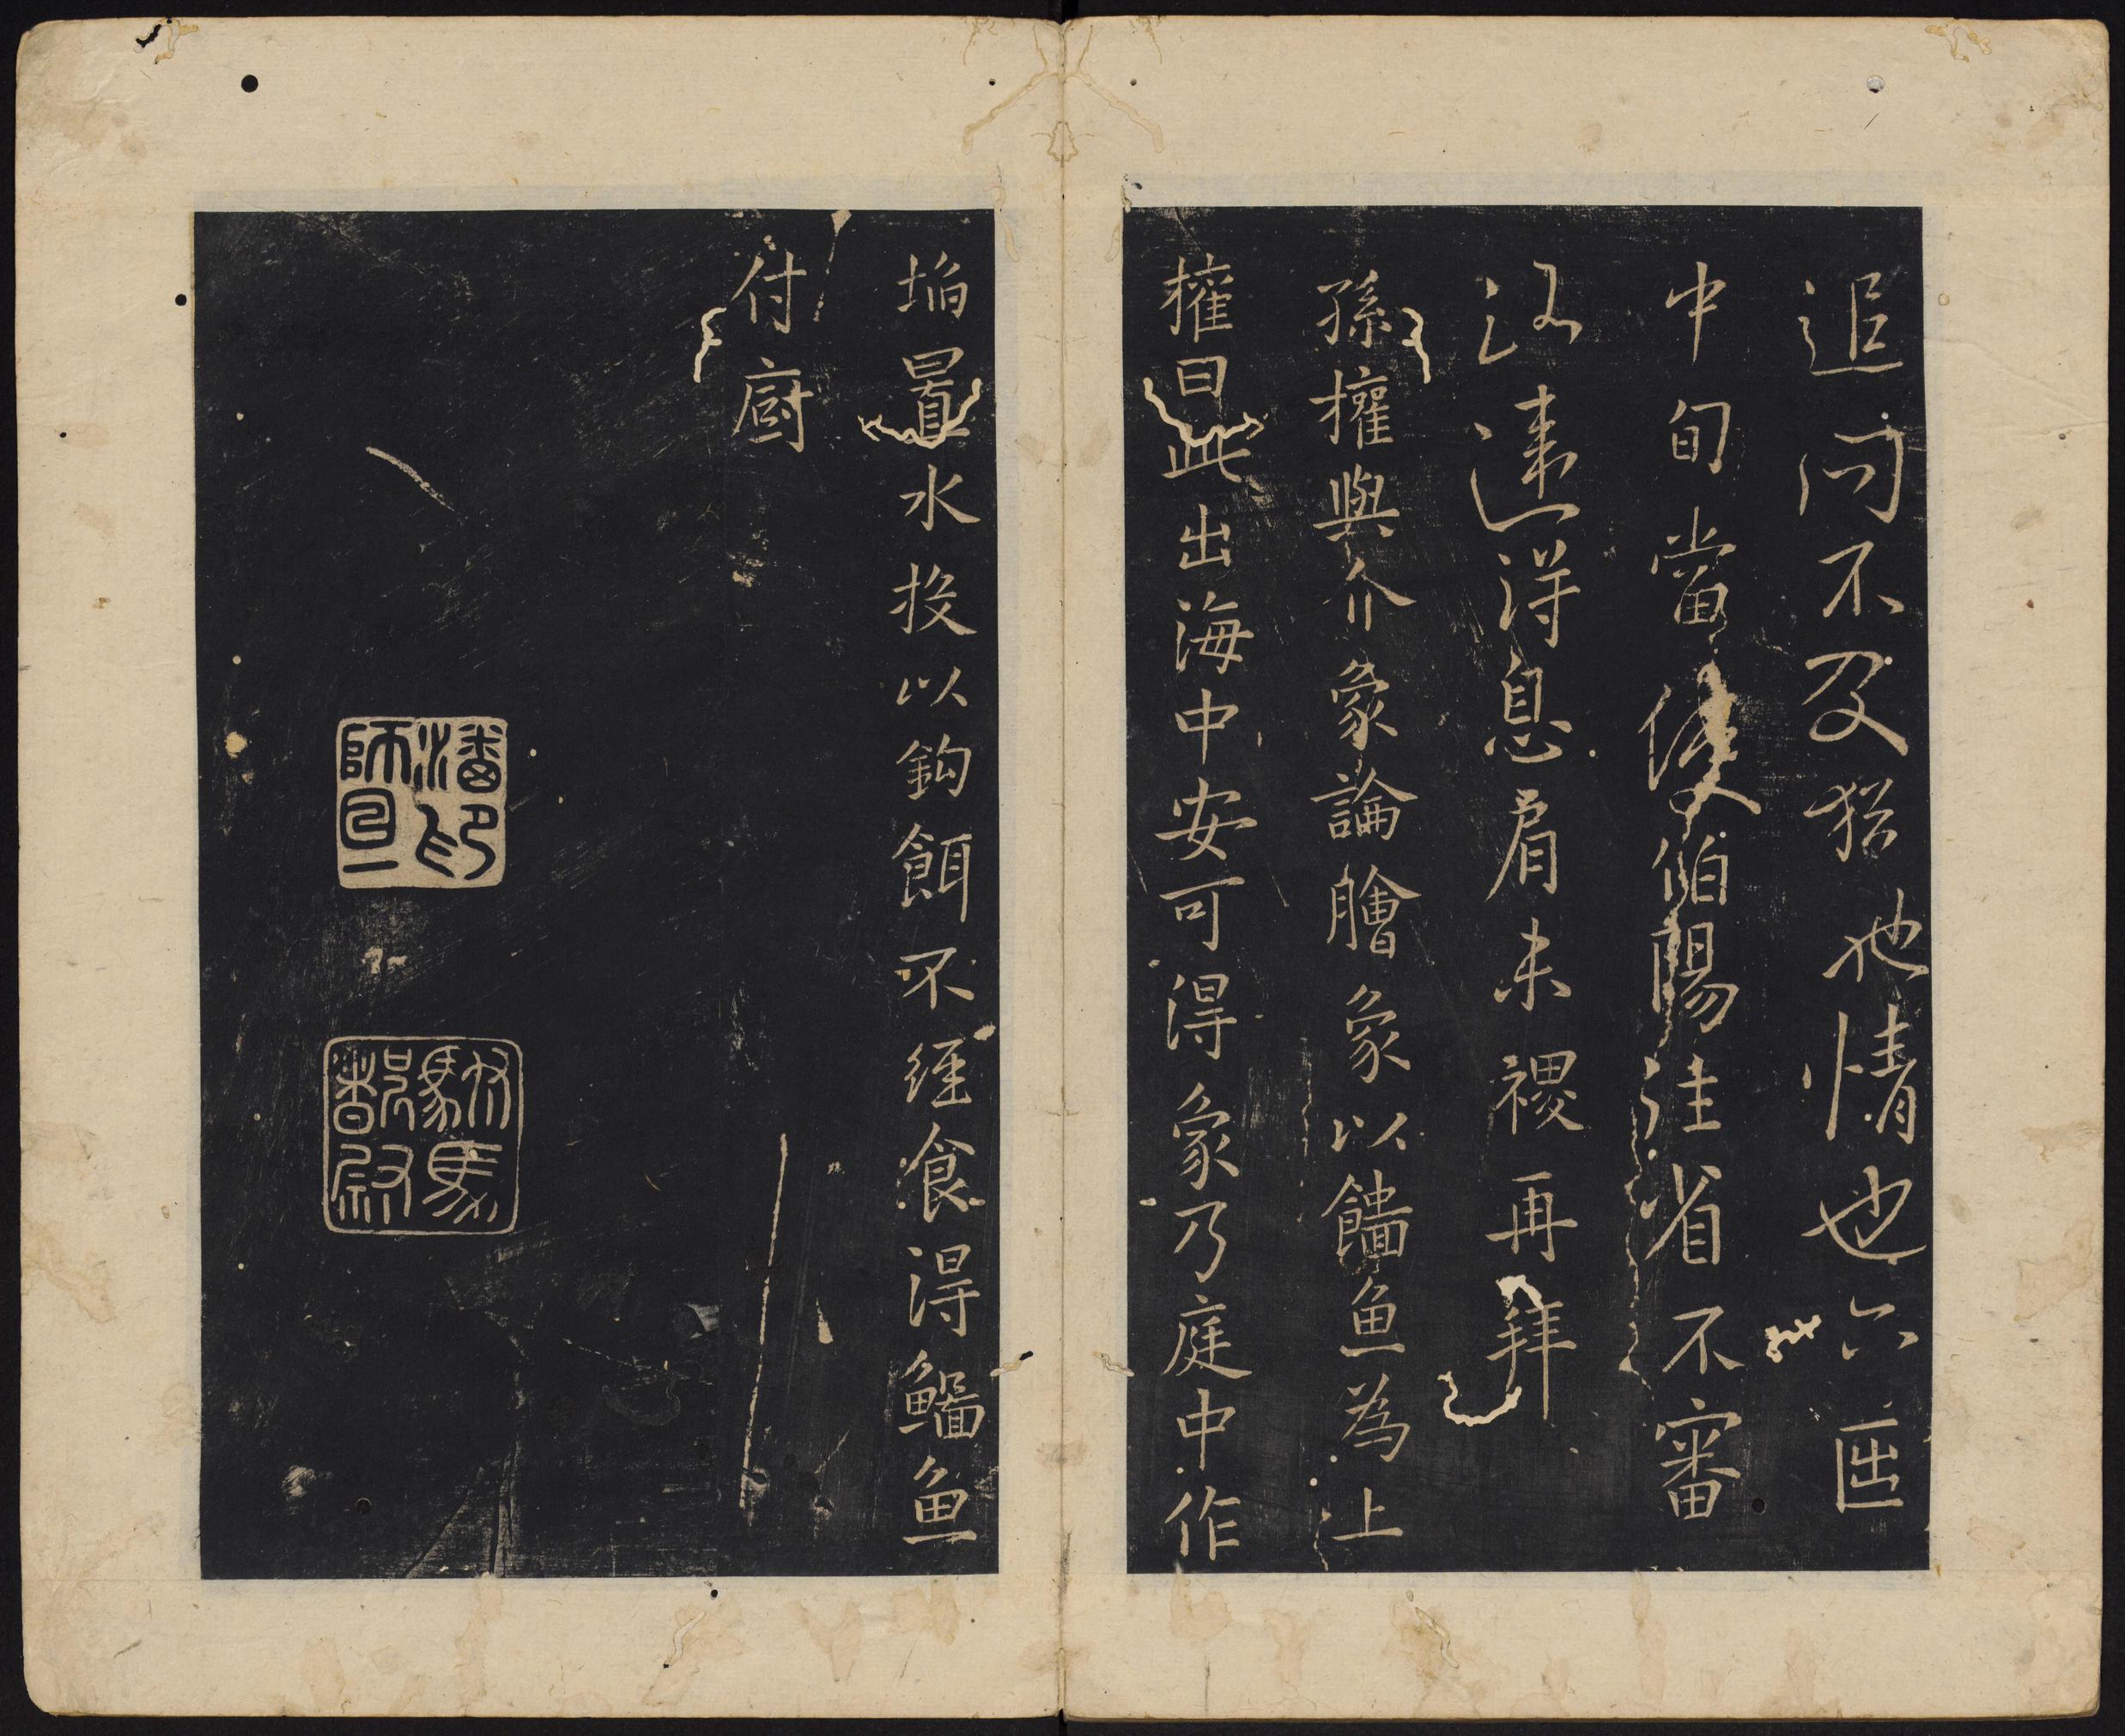 追問不及猶他情也六匹
中旬當使伯陽往省不審
以速得息肩未禝再拜
孫權與介象論膾象以鱕魚為上
權曰此出海中安可得象乃庭中作
埳置水投以鈎餌不經食得鯔魚
付廚
潘印師旦
駙馬都尉